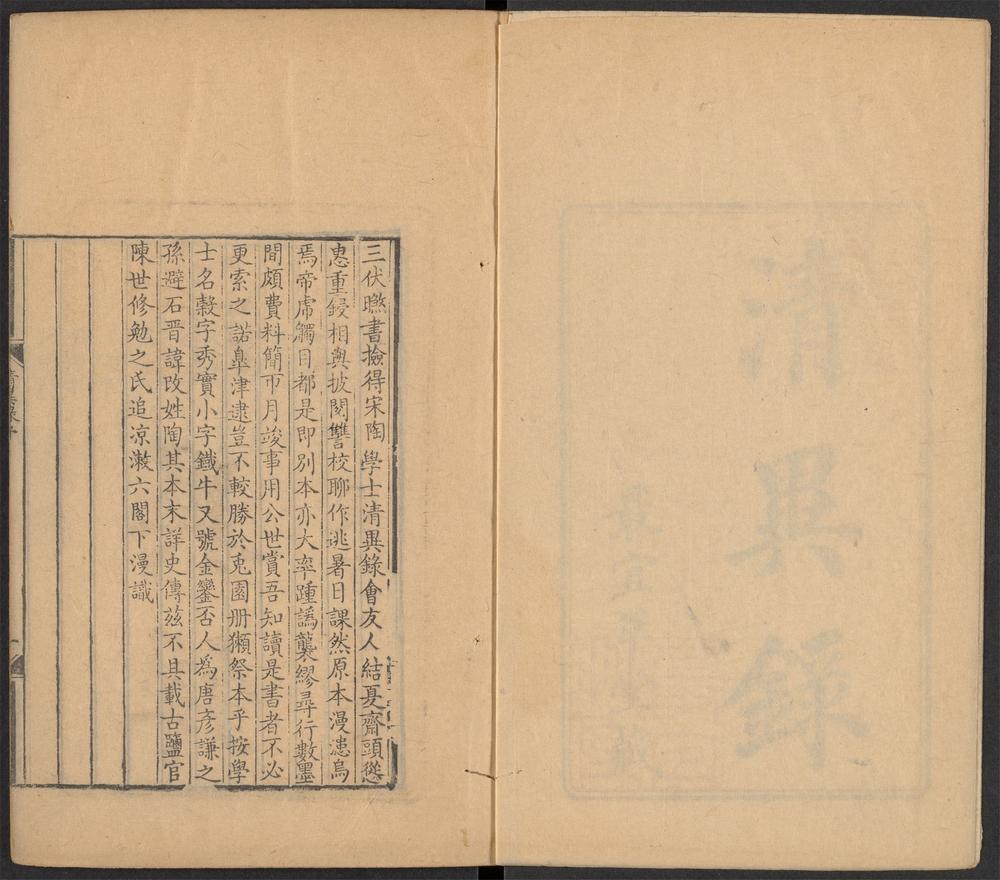 三伏曝書撿得宋陶學士清異錄會友人結夏齋頭慫
恿重鋟相與披閱讐校聊作逃暑日課然原本漫漶烏
焉帝虎觸目都是即別本亦大率踵譌襲繆尋行數墨
間頗費料簡帀月竣事用公世賞吾知讀是書者不必
更索之諾臯津逮豈不較勝於兎園册獺祭本乎按學
士名穀字秀實小字鐵牛又號金鑾否人為唐彥謙之
孫避石晉諱改姓陶其本末詳史傳茲不具載古鹽官
陳世修勉之氏追凉漱六閣下漫識
清異錄序
清異錄